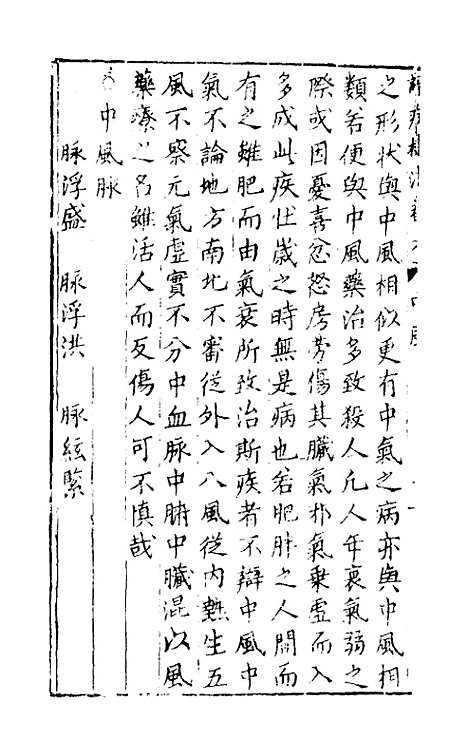 之形狀與中風相似更有中氣之病亦與中風相
類若便與中風藥治多致殺人凡人年衰氣弱之
際或因憂喜忿怒房勞傷其臟氣邪氣乗虛而入
多成此疾壮歳之時無是病也若肥胖之人間而
有之雖肥而由氣衰所致治斯疾者不辯中風中
氣不論地方南北不審從外入八風從内熱生五
風不察元氣虛實不分中血脉中腑中臟混以風
藥療之名雖活人而反傷人可不慎哉
中風脉
脉浮盛 脉浮洪 脉絃緊